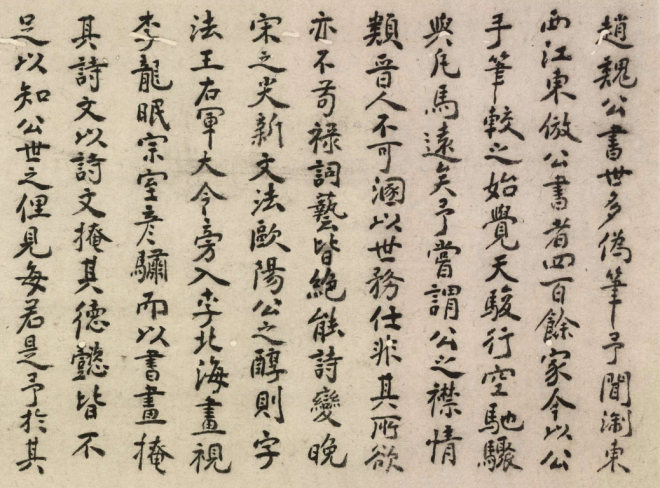 趙魏公書世多偽筆予聞淛東
西江東倣公書者四百餘家今以公
手筆較之始覺天駿行空馳驟
與凡馬遠矣予嘗謂公之襟情
類晉人不可溷以世務仕非其所欲
亦不苟祿詞藝皆絕能詩變晚
宋之尖新文法歐陽公之醇則字
法王右軍大令旁入李北海畫視
李龍眠宗室彥驌而以書畫掩
其詩文以詩文掩其德懿皆不
足以知公世之俚見每若是予於其